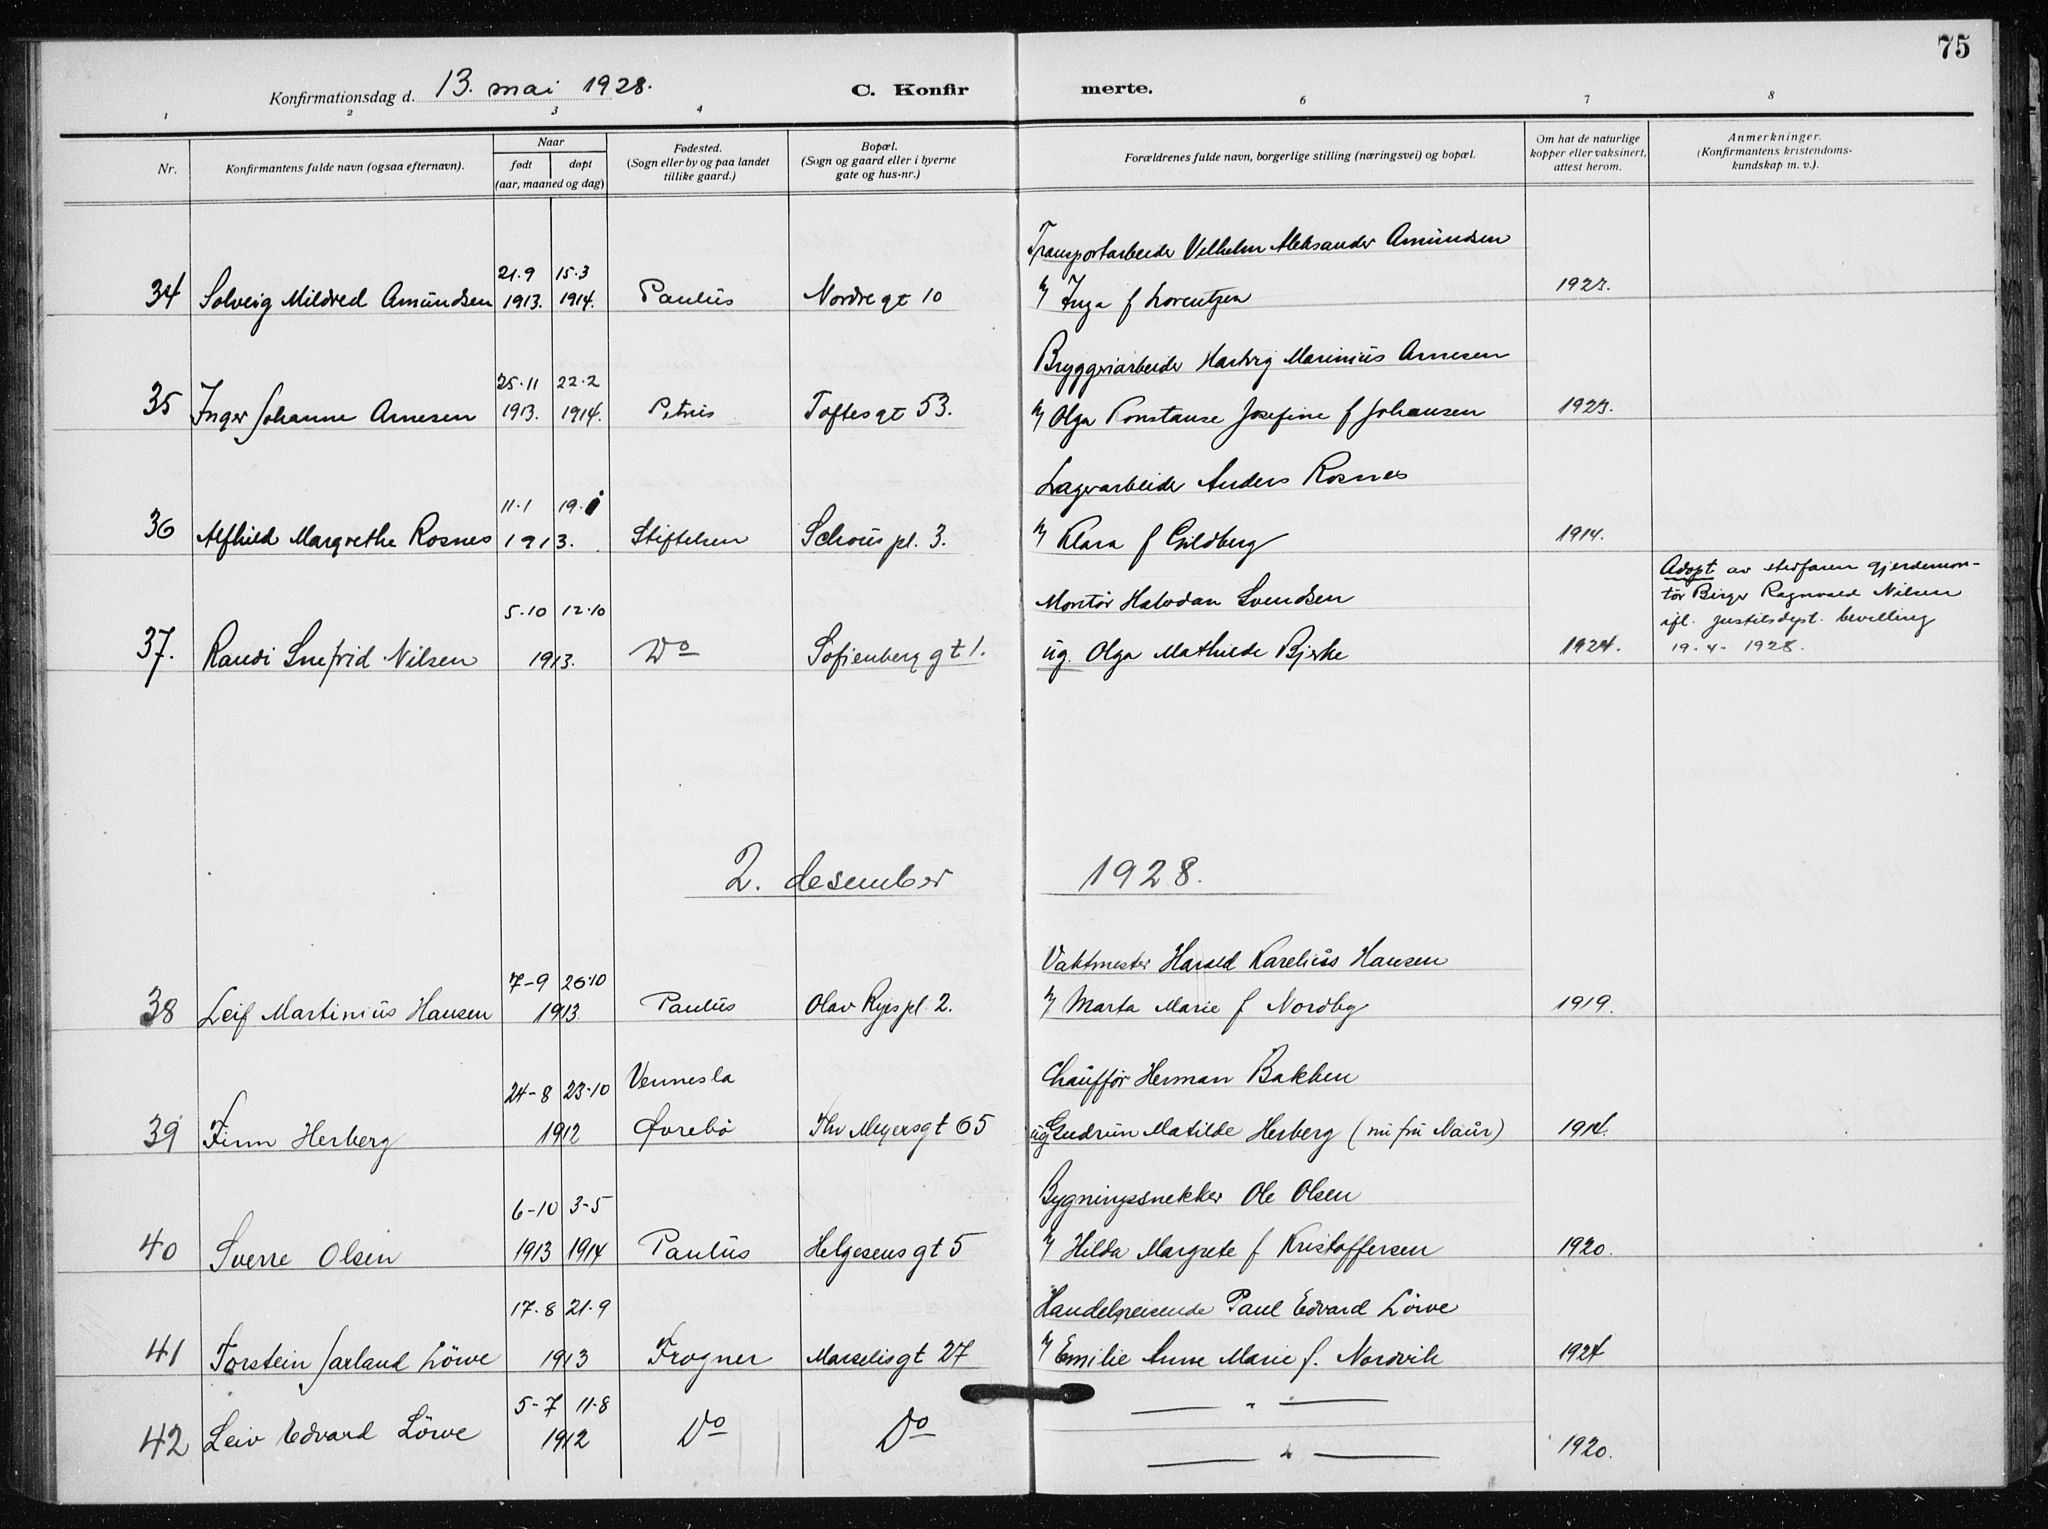 75
Konfirmationsdag d. 13. mai 1928. C. Konfirmerte.
1 2 3 4 6 7 8
Nr. Konfirmantens fulde navn (ogsaa efternavn). Naar født døpt (aar, maaned og dag) Fødested. (Sogn eller by og paa landet tillike gaard.) Bopæl. (Sogn og gaard eller i byerne gate og hus-nr.) Forældrenes fulde navn, borgerlige stilling (næringsvei) og bopæl. Om hat de naturlige kopper eller vaksinert, attest herom. Anmerkninger. (Konfirmantens kristendomskundskap m. v.).
Transportarbeider Vilhelm Aleksander Amundsen
21.9 15.3
34 Solveig Mildred Amundsen 1913. 1914. Paulus Nordre gt 10 Inga f Lorentzen 1923.
Bryggeriarbeider Hartvig Marinius Arnesen
25.11 22.2
35 Inger Johanne Arnesen 1913. 1914. Petrus Toftes gt 53. Olga Konstanse Josefine f Johansen 1923.
Lagerarbeider Anders Rosnes
11.1 19.
36 Alfhild Margrethe Rosnes 1913. Stiftelsen Schous pl. 3. Klara f Gildberg 1914.
Adopt av stedfaren gjerdemon-
Montør Halvdan Svendsen tør Birger Ragnvald Nilsen
5.10 12.10 ifl. justilsdept. bevilling
37. Randi Snefrid Nilsen 1913. Do Sofienberg gt 1. ug. Olga Mathilde Bjerke 1924. 19.4. 1928.
2. desember 1928.
Vaktmester Harald Karelius Hansen
7-9 26.10
38 Leif Martinius Hansen 1913 Paulus Olav Ryes pl. 2. Marta Marie f Nordby 1919.
24-8 23-10 Vennesla Chauffør Herman Bakken
39 Finn Herberg 1912 Øvrebø Thv Meyersgt 65 ug Gudrun Matilde Herberg (nu fru Naur) 1914.
6-10 3-5 Bygningssnekker Ole Olsen
40 Sverre Olsen 1913 1914 Paulus Helgesens gt 5 Hilda Margrete f Kristoffersen 1920.
17.8 21.9 Handelsreisende Paul Edvard Löwe
41 Torstein Jarland Löwe 1913 Frogner Marselisgt 27 Emilie Anne Marie f. Nordvik 1924
5-7 11-8 — " —
42 Leiv Edvard Löwe 1912 Do Do — " — 1920.